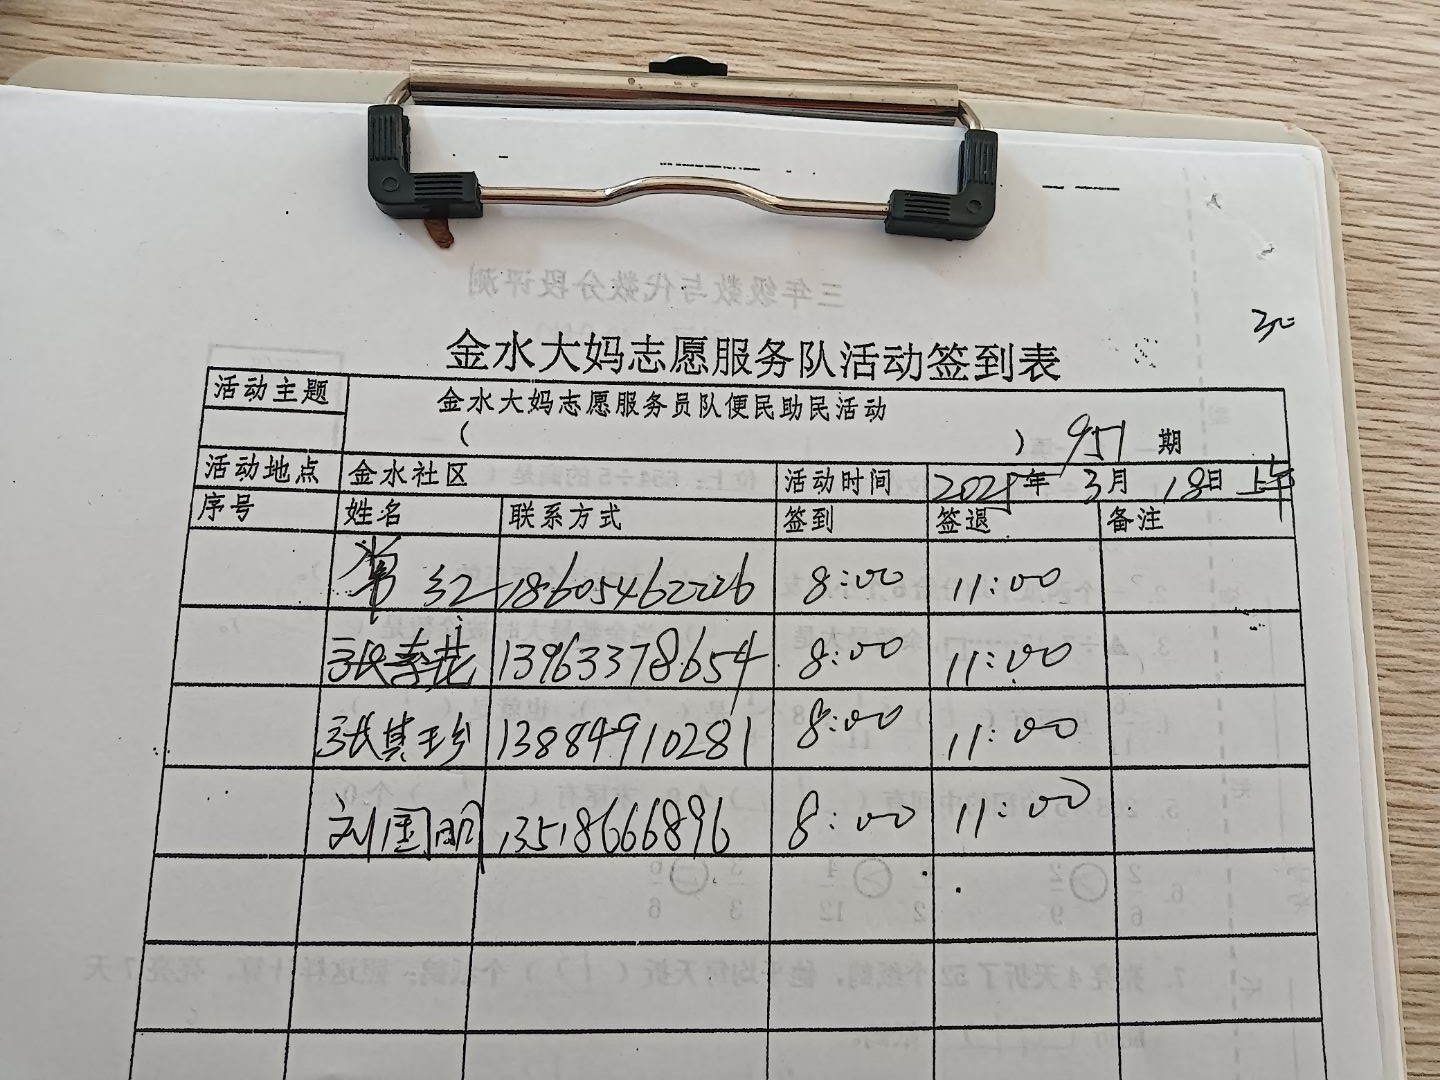 金水大妈志愿服务队活动签到表
活动主题 金水大妈志愿服务员队便民助民活动
( ) 951 期
活动地点 金水社区 活动时间 年 3月 18日 上午
序号 姓名 联系方式 签到 签退 备注
18605462226 8:00 11:00
张秀花 13963378654 8:00 11:00
张其珍 13884910281 8:00 11:00
刘国明 13518666896 8:00 11:00